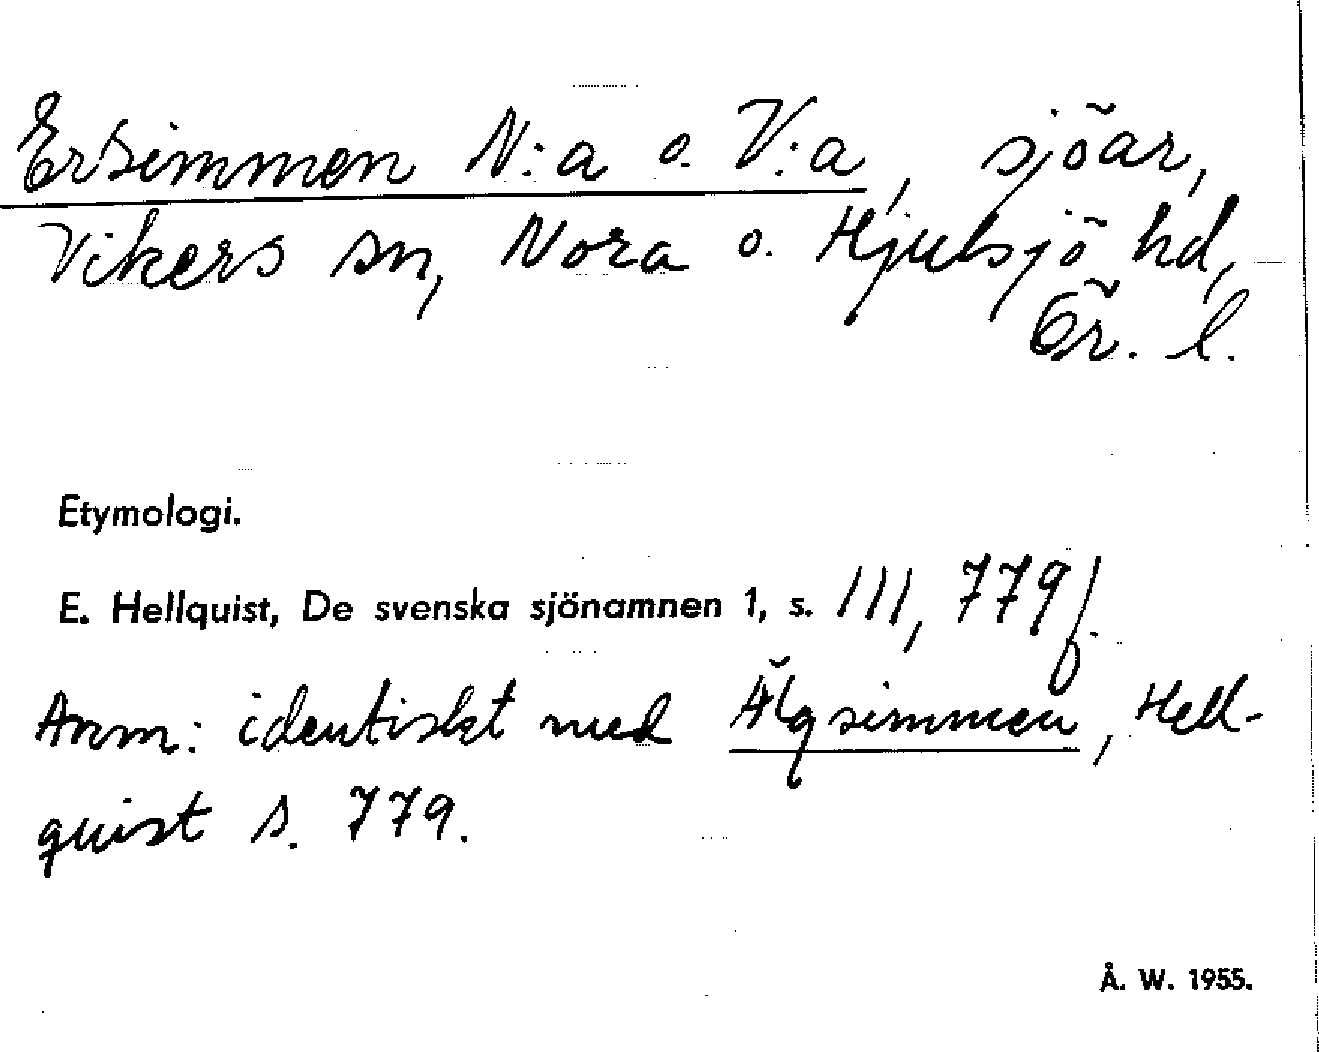 Ersimmen N:a o. V:a, sjöar,
Vikers sn, Nora o. Hjulsjö hd,
Ör. l.
Etymologi.
E. Hellquist, De svenska sjönamnen 1, s. 111, 779 f.
Anm: identiskt med Älgsimmen, Hell-
quist s. 779.
Å. W. 1955.